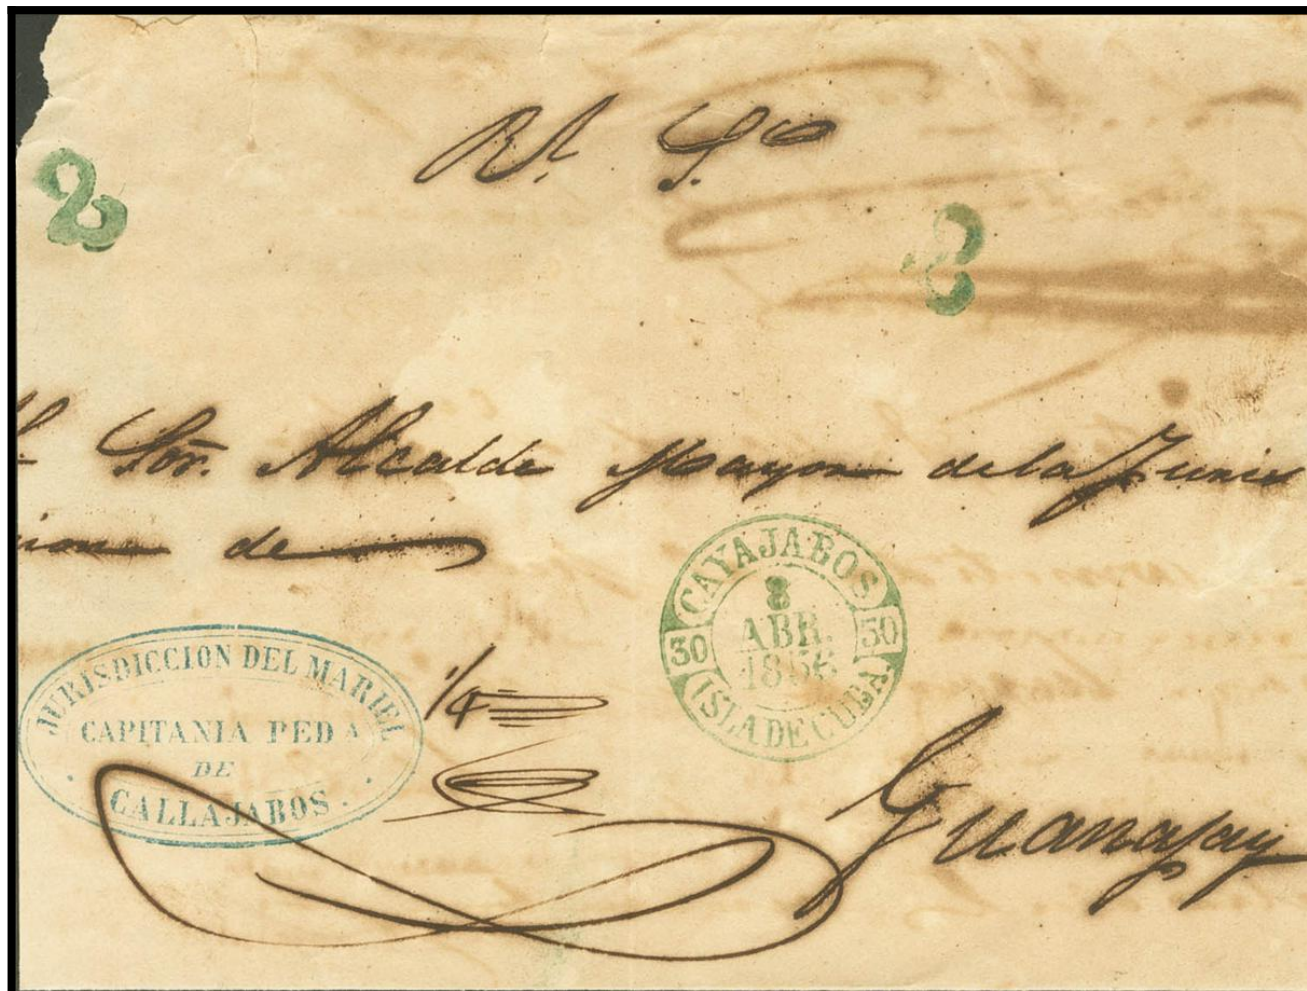 Rl. S.º
2
2
Sor. Alcalde Mayor de la Juris
cione de
CAYAJABOS
8
ABR.
1856
30 30
ISLA DE CUBA
JURISDICCION DEL MARIEL
CAPITANIA PED A
DE
CALLAJABOS.
1/4
Guanajay